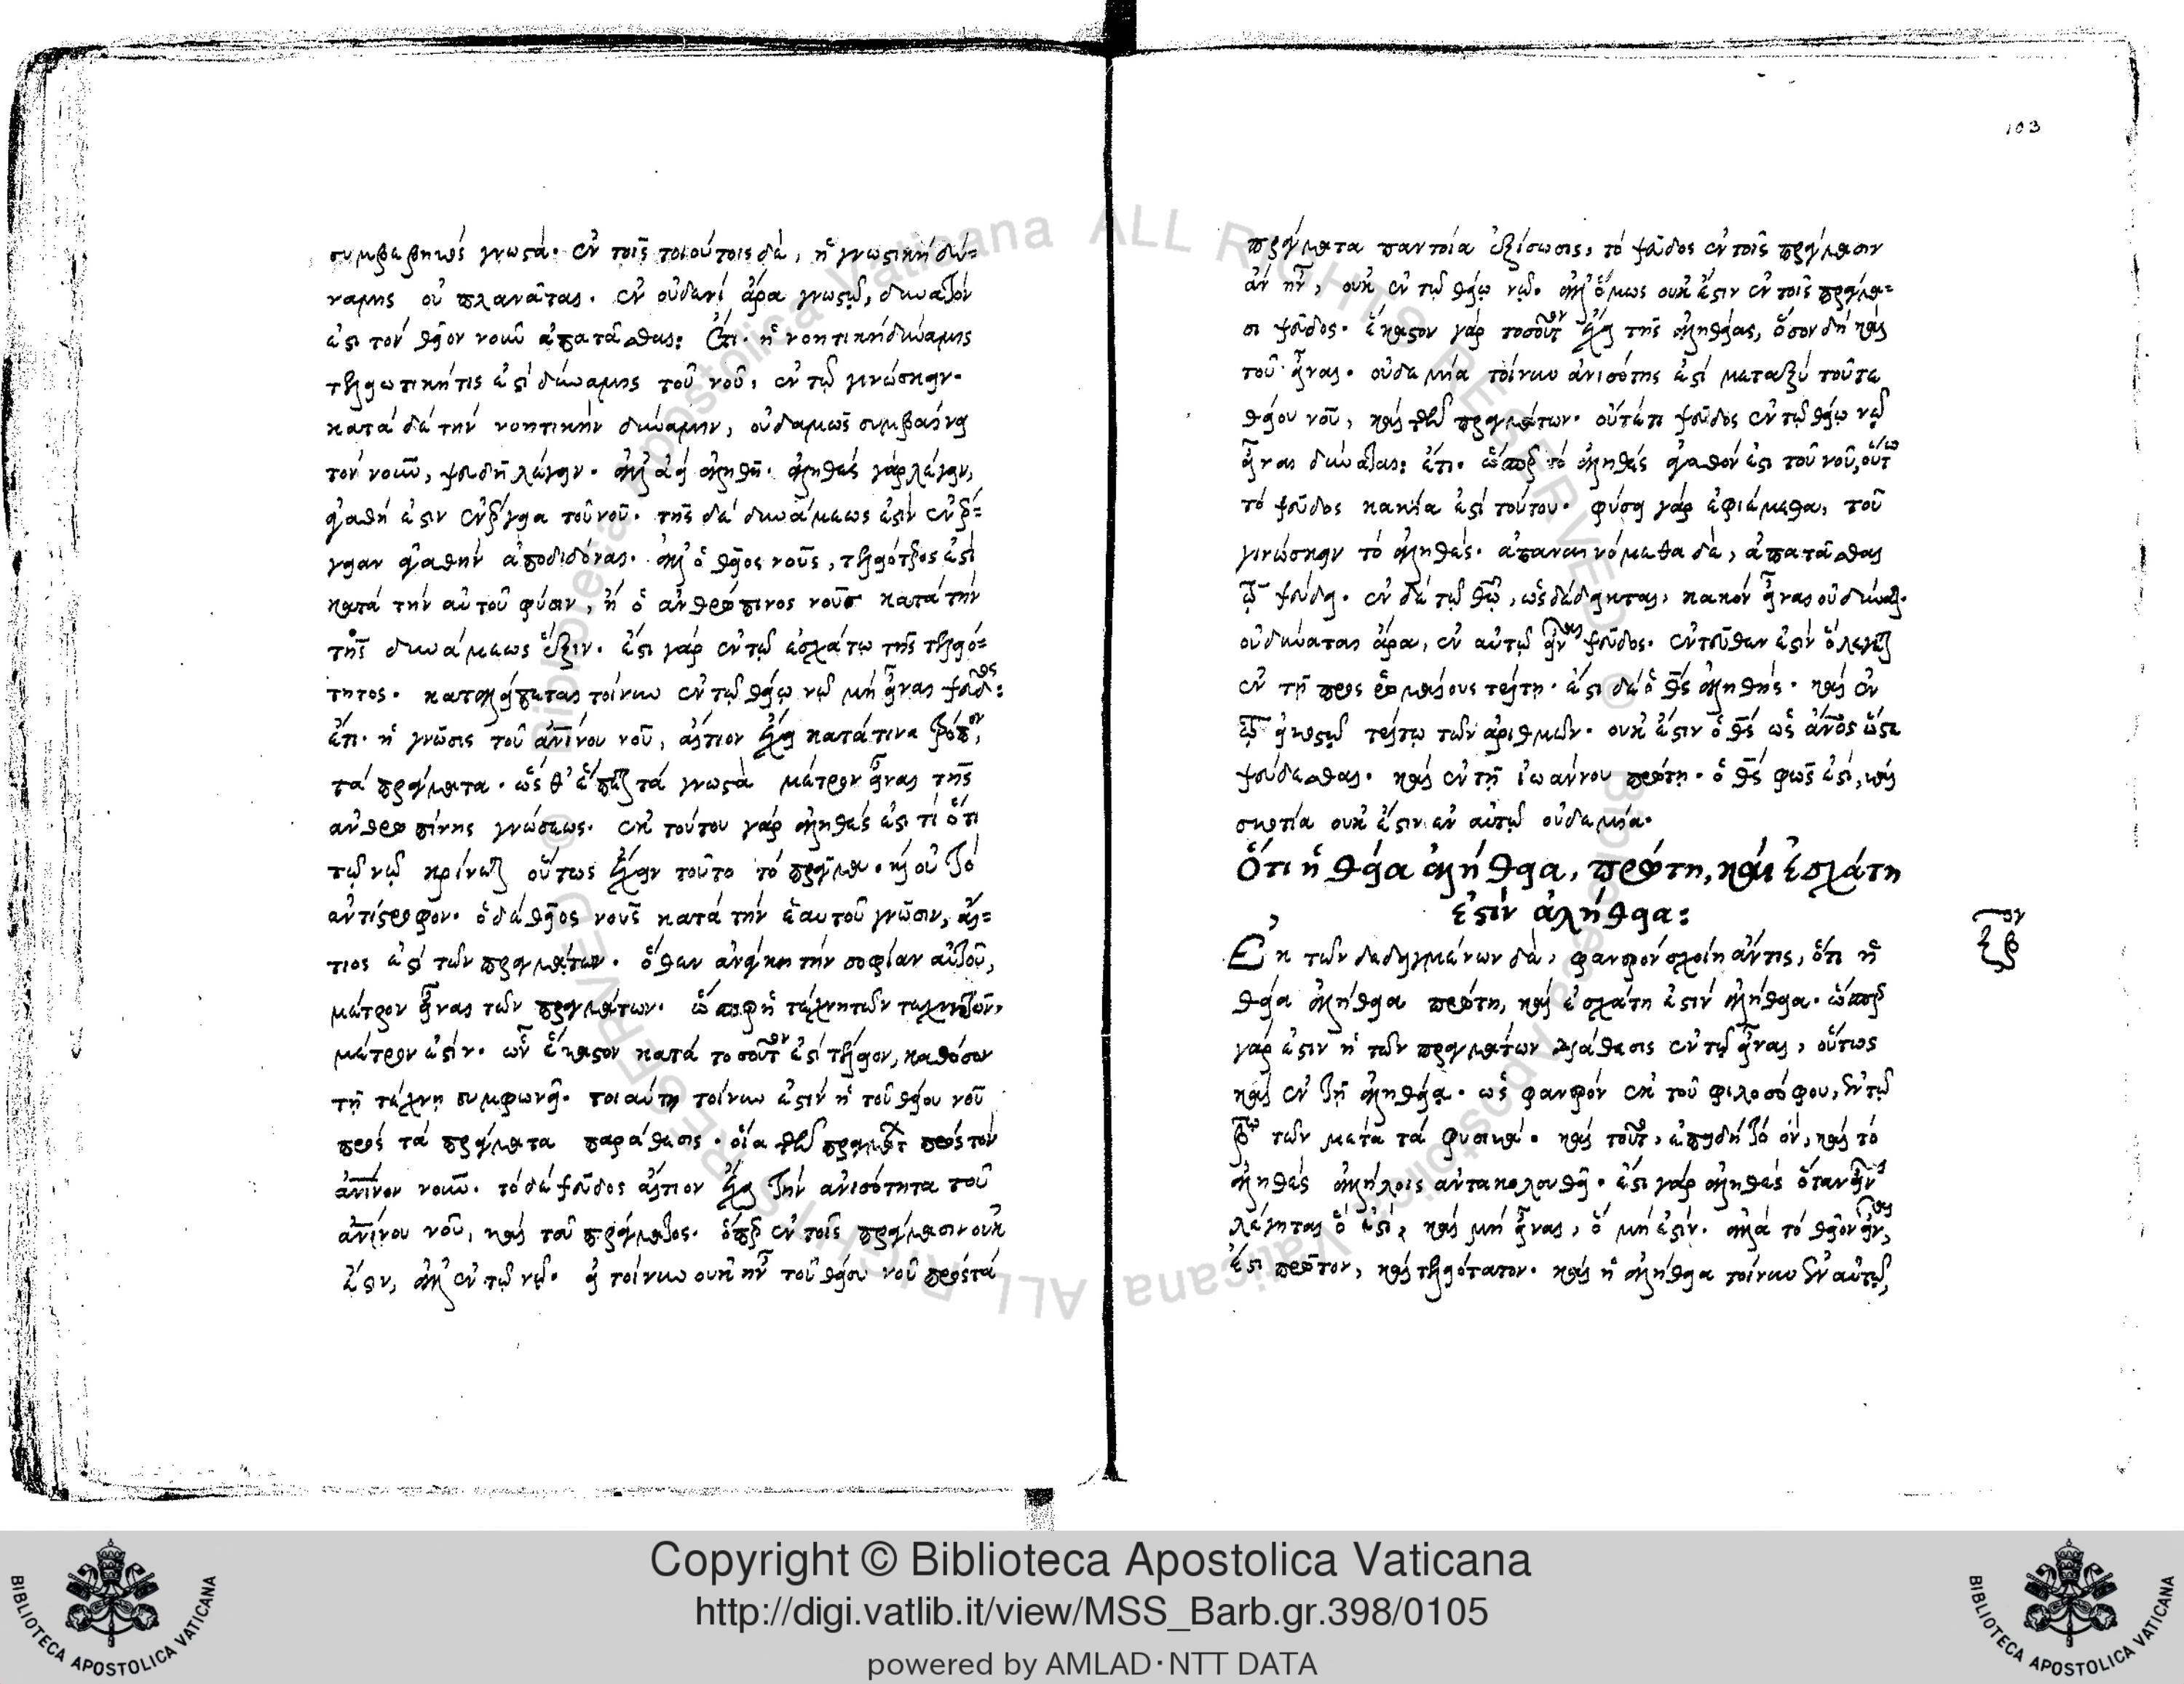 συμβεβηκός γνωστά. ἐν τοῖς τοιούτοις δὲ, ἡ γνωστικὴ δύ=
ναμις οὐ πλανᾶται. ἐν οὐδενὶ ἄρα γνωστῷ, δυνατόν
ἐστι τὸν θεῖον νοῦν ἀπατᾶσθαι: Ἔτι. ἡ νοητικὴ δύναμις
τελειωτική τίς ἐστι δύναμις τοῦ νοῦ, ἐν τῷ γινώσκειν.
κατὰ δὲ τὴν νοητικὴν δύναμιν, οὐδαμῶς συμβαίνει
τὸν νοῦν, ψευδῆ λέγειν. ἀλλ' ἀεὶ ἀληθῆ. ἀληθὲς γὰρ λέγειν,
ἀγαθή ἐστιν ἐνέργεια τοῦ νοῦ. τῆς δὲ δυνάμεως ἐστὶν ἐνέρ=
γειαν ἀγαθὴν ἀποδιδόναι. ἀλλ' ὁ θεῖος νοῦς, τελειότερός ἐστι
κατὰ τὴν αὐτοῦ φύσιν, ἢ ὁ ἀνθρώπινος νοῦς κατὰ τὴν
τῆς δυνάμεως ἕξιν. ἔστι γὰρ ἐν τῷ ἐσχάτῳ τῆς τελειό=
τητος. καταλείπεται τοίνυν ἐν τῷ θείῳ νῷ μὴ εἶναι ψεῦδος:
ἔτι. ἡ γνῶσις τοῦ ἀνίνου νοῦ, αἴτιον ἔχει κατά τινα τρόπον,
τὰ πράγματα. ὡς θ' ἕπεται τὰ γνωστὰ μέτρον εἶναι τῆς
ἀνθρωπίνης γνώσεως. ἐκ τούτου γὰρ ἀληθές ἐστί τι ὅτι
τῷ νῷ κρίνεται οὕτως ἔχειν τοῦτο τὸ πρᾶγμα. καὶ οὐ τὸ
ἀντίστροφον. ὁ δὲ θεῖος νοῦς κατὰ τὴν ἑαυτοῦ γνῶσιν, αἴ=
τιός ἐστι τῶν πραγμάτων. ὅθεν ἀνάγκη τὴν σοφίαν αὐτοῦ,
μέτρον εἶναι τῶν πραγμάτων. ὥσπερ ἡ τέχνη τῶν τεχνητῶν,
μέτρον ἐστίν. ὧν ἕκαστον κατὰ τοσοῦτόν ἐστι τέλειον, καθόσον
τῇ τέχνῃ συμφωνεῖ. τοιαύτη τοίνυν ἐστὶν ἡ τοῦ θείου νοῦ
πρὸς τὰ πράγματα παράθεσις. οἵα τῶν πραγμάτων πρὸς τὸν
ἀνίνον νοῦν. τὸ δὲ ψεῦδος αἴτιον ἔχει τὴν ἀνισότητα τοῦ
ἀνίνου νοῦ, καὶ τοῦ πράγματος. ὅπερ ἐν τοῖς πράγμασιν οὐκ
ἔστιν, ἀλλ' ἐν τῷ νῷ. εἰ τοίνυν οὐκ ἦν τοῦ θείου νοῦ πρὸς τὰ
103
πράγματα παντοία ἐξίσωσις, τὸ ψεῦδος ἐν τοῖς πράγμασιν
ἂν ἦν, οὐκ ἐν τῷ θείῳ νῷ. ἀλλ' ὅμως οὐκ ἔστιν ἐν τοῖς πράγμα=
σι ψεῦδος. ἕκαστον γὰρ τοσοῦτον ἔχει τῆς ἀληθείας, ὅσον δὴ καὶ
τοῦ εἶναι. οὐδεμία τοίνυν ἀνισότης ἐστὶ μεταξὺ τοῦ τε
θείου νοῦ, καὶ τῶν πραγμάτων. οὔτέ τι ψεῦδος ἐν τῷ θείῳ νῷ
εἶναι δύναται: ἔτι. ὥσπερ τὸ ἀληθὲς ἀγαθόν ἐστι τοῦ νοῦ, οὕτω
τὸ ψεῦδος κακία ἐστὶ τούτου. φύσει γὰρ ἐφιέμεθα, τοῦ
γινώσκειν τὸ ἀληθές. ἀπαναινόμεθα δὲ, ἀπατᾶσθαι
τῷ ψεύδει. ἐν δὲ τῷ θῶ, ὡς δέδεικται, κακὸν εἶναι οὐ δύναται.
οὐ δύναται ἄρα, ἐν αὐτῷ εἶναι ψεῦδος. ἐντεῦθέν ἐστιν ὃ λέγεται
ἐν τῇ πρὸς ῥωμαίους τρίτη. ἔστι δὲ ὁ θς ἀληθής. καὶ ἐν
τῷ εἰκοστῷ τρίτῳ τῶν ἀριθμῶν. οὐκ ἔστιν ὁ θς ὡς ἄνος ὥστε
ψεύδεσθαι. καὶ ἐν τῇ ἰωάννου πρώτη. ὁ θς φῶς ἐστί, καὶ
σκοτία οὐκ ἔστιν ἐν αὐτῷ οὐδεμία.
Ὅτι ἡ θεία ἀλήθεια, πρώτη, καὶ ἐσχάτη
ἐστὶν ἀλήθεια:
Ἐκ τῶν δεδειγμένων δὲ, φανερὸν σχοίη ἄν τις, ὅτι ἡ
θεία ἀλήθεια πρώτη, καὶ ἐσχάτη ἐστὶν ἀλήθεια. ὥσπερ
γάρ ἐστιν ἡ τῶν πραγμάτων διάθεσις ἐν τῷ εἶναι, οὕτως
καὶ ἐν τῇ ἀληθείᾳ. ὡς φανερὸν ἐκ τοῦ φιλοσόφου, ἐν τῷ
βω τῶν μετὰ τὰ φυσικά. καὶ τοῦτο, ἐπειδὴ τὸ ὂν, καὶ τὸ
ἀληθὲς ἀλλήλοις ἀντακολουθεῖ. ἔστι γὰρ ἀληθὲς ὅταν εἶναι
λέγηται ὅ ἐστι, καὶ μὴ εἶναι, ὃ μή ἐστιν. ἀλλὰ τὸ θεῖον εἶναι,
ἐστὶ πρῶτον, καὶ τελειότατον. καὶ ἡ ἀλήθεια τοίνυν ἐν αὐτῷ,
ξβον